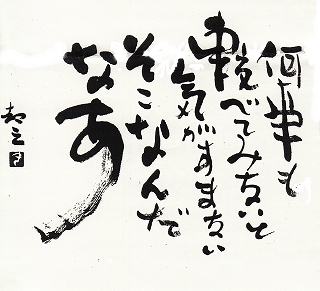 何事も
較べてみないと
気がすまない
そこなんだ
なあ